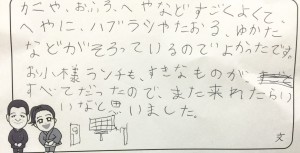 かにや、おふろ、へやなどすごくよくて、
へやに、ハブラシやたおる、ゆかた
などがそろっているのでよかったです。
お小様ランチも、すきなものが、
すべてだったので、また来れたらい
いなと思いました。
文